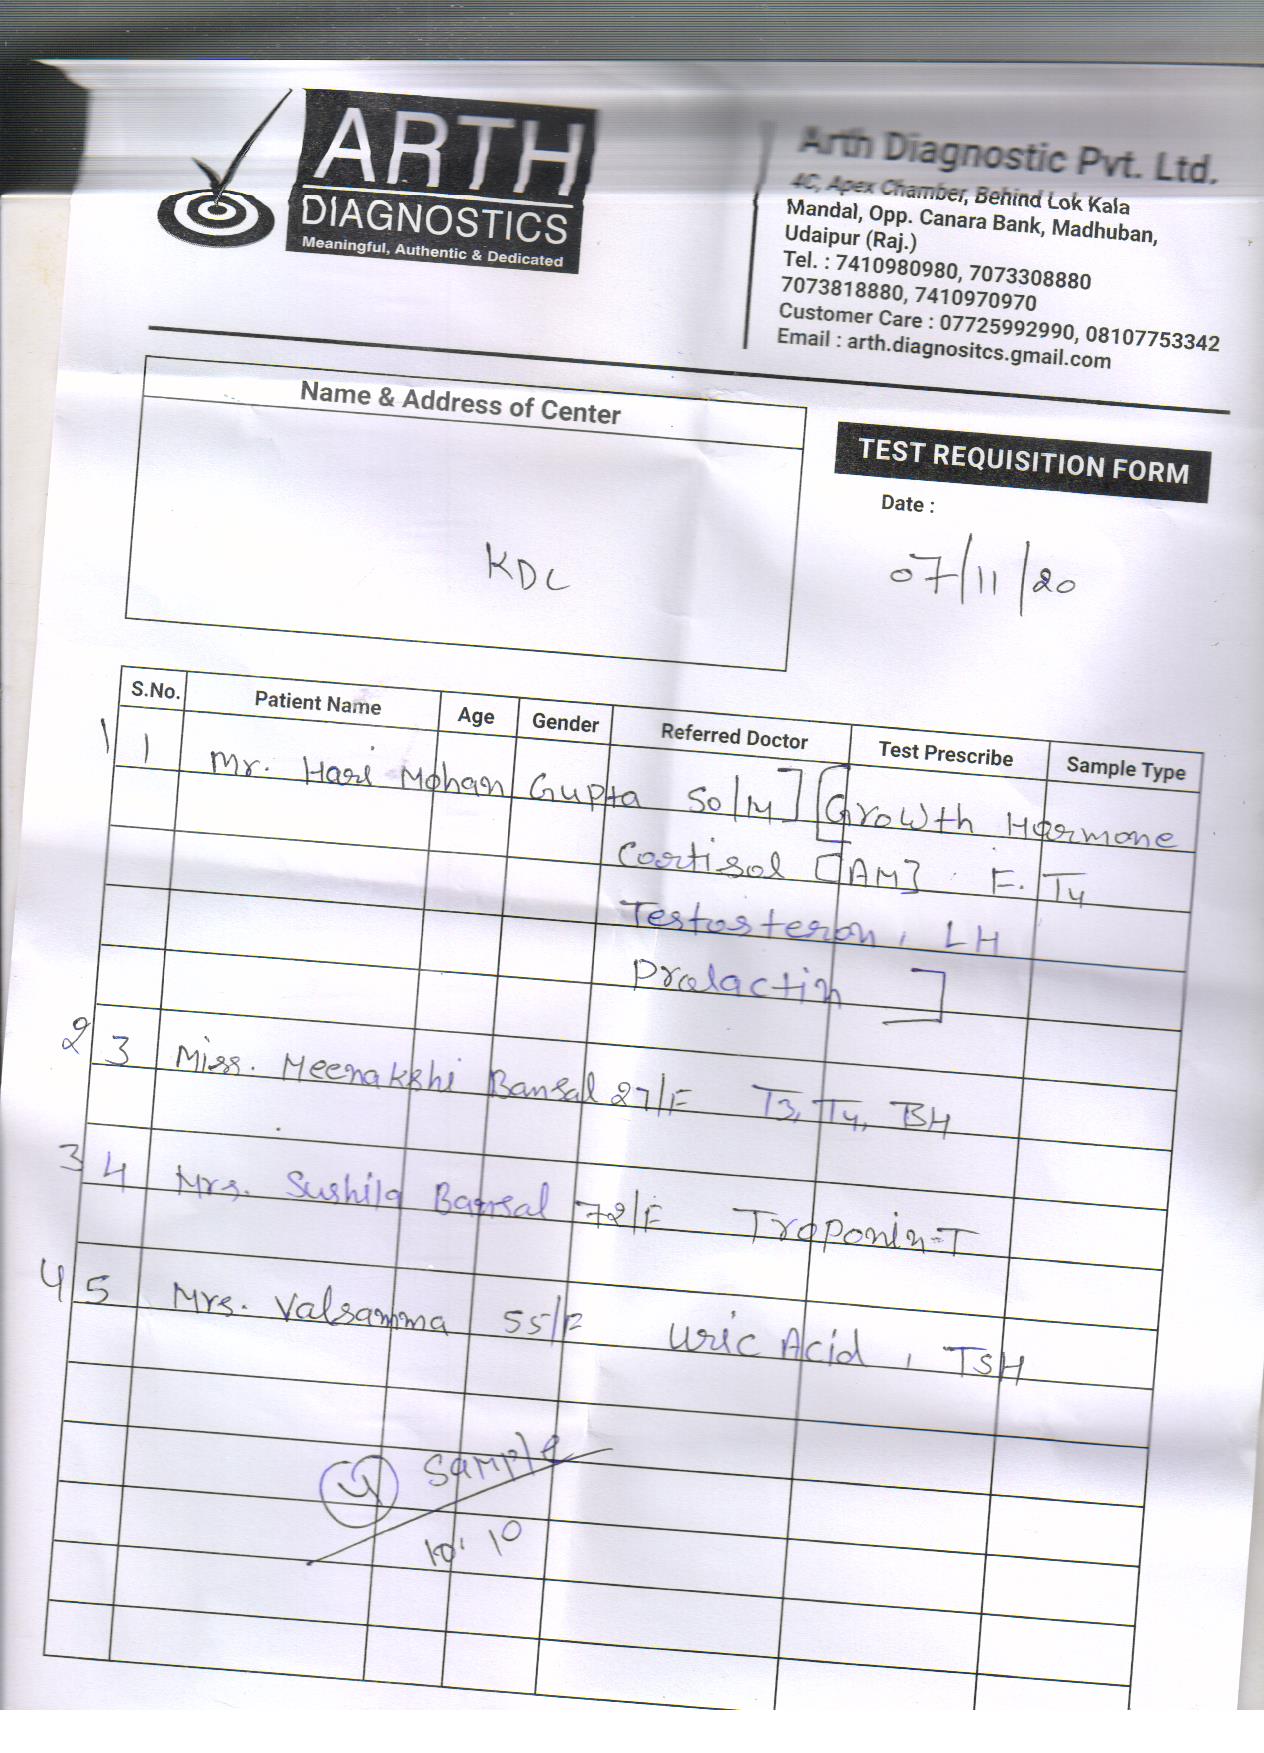 ARTH
DIAGNOSTICS
Meaningful, Authentic & Dedicated
Arth Diagnostic Pvt. Ltd.
4C, Apex Chamber, Behind Lok Kala
Mandal, Opp. Canara Bank, Madhuban,
Udaipur (Raj.)
Tel. : 7410980980, 7073308880
7073818880, 7410970970
Customer Care : 07725992990, 08107753342
Email : arth.diagnositcs.gmail.com
Name & Address of Center
KDC
TEST REQUISITION FORM
Date :
07/11/20
S.No. Patient Name Age Gender Referred Doctor Test Prescribe Sample Type
1 1 Mr. Hari Mohan Gupta 50/M] [Growth Harmone
Cortisol [AM] F. T4
Testosteron, LH
Prolactin ]
2 3 Miss. Meenakshi Bansal 27/F T3, T4, TSH
3 4 Mrs. Sushila Bansal 72/F Troponin-T
4 5 Mrs. Valsamma 55/F Uric Acid, TSH
Sample
10:10